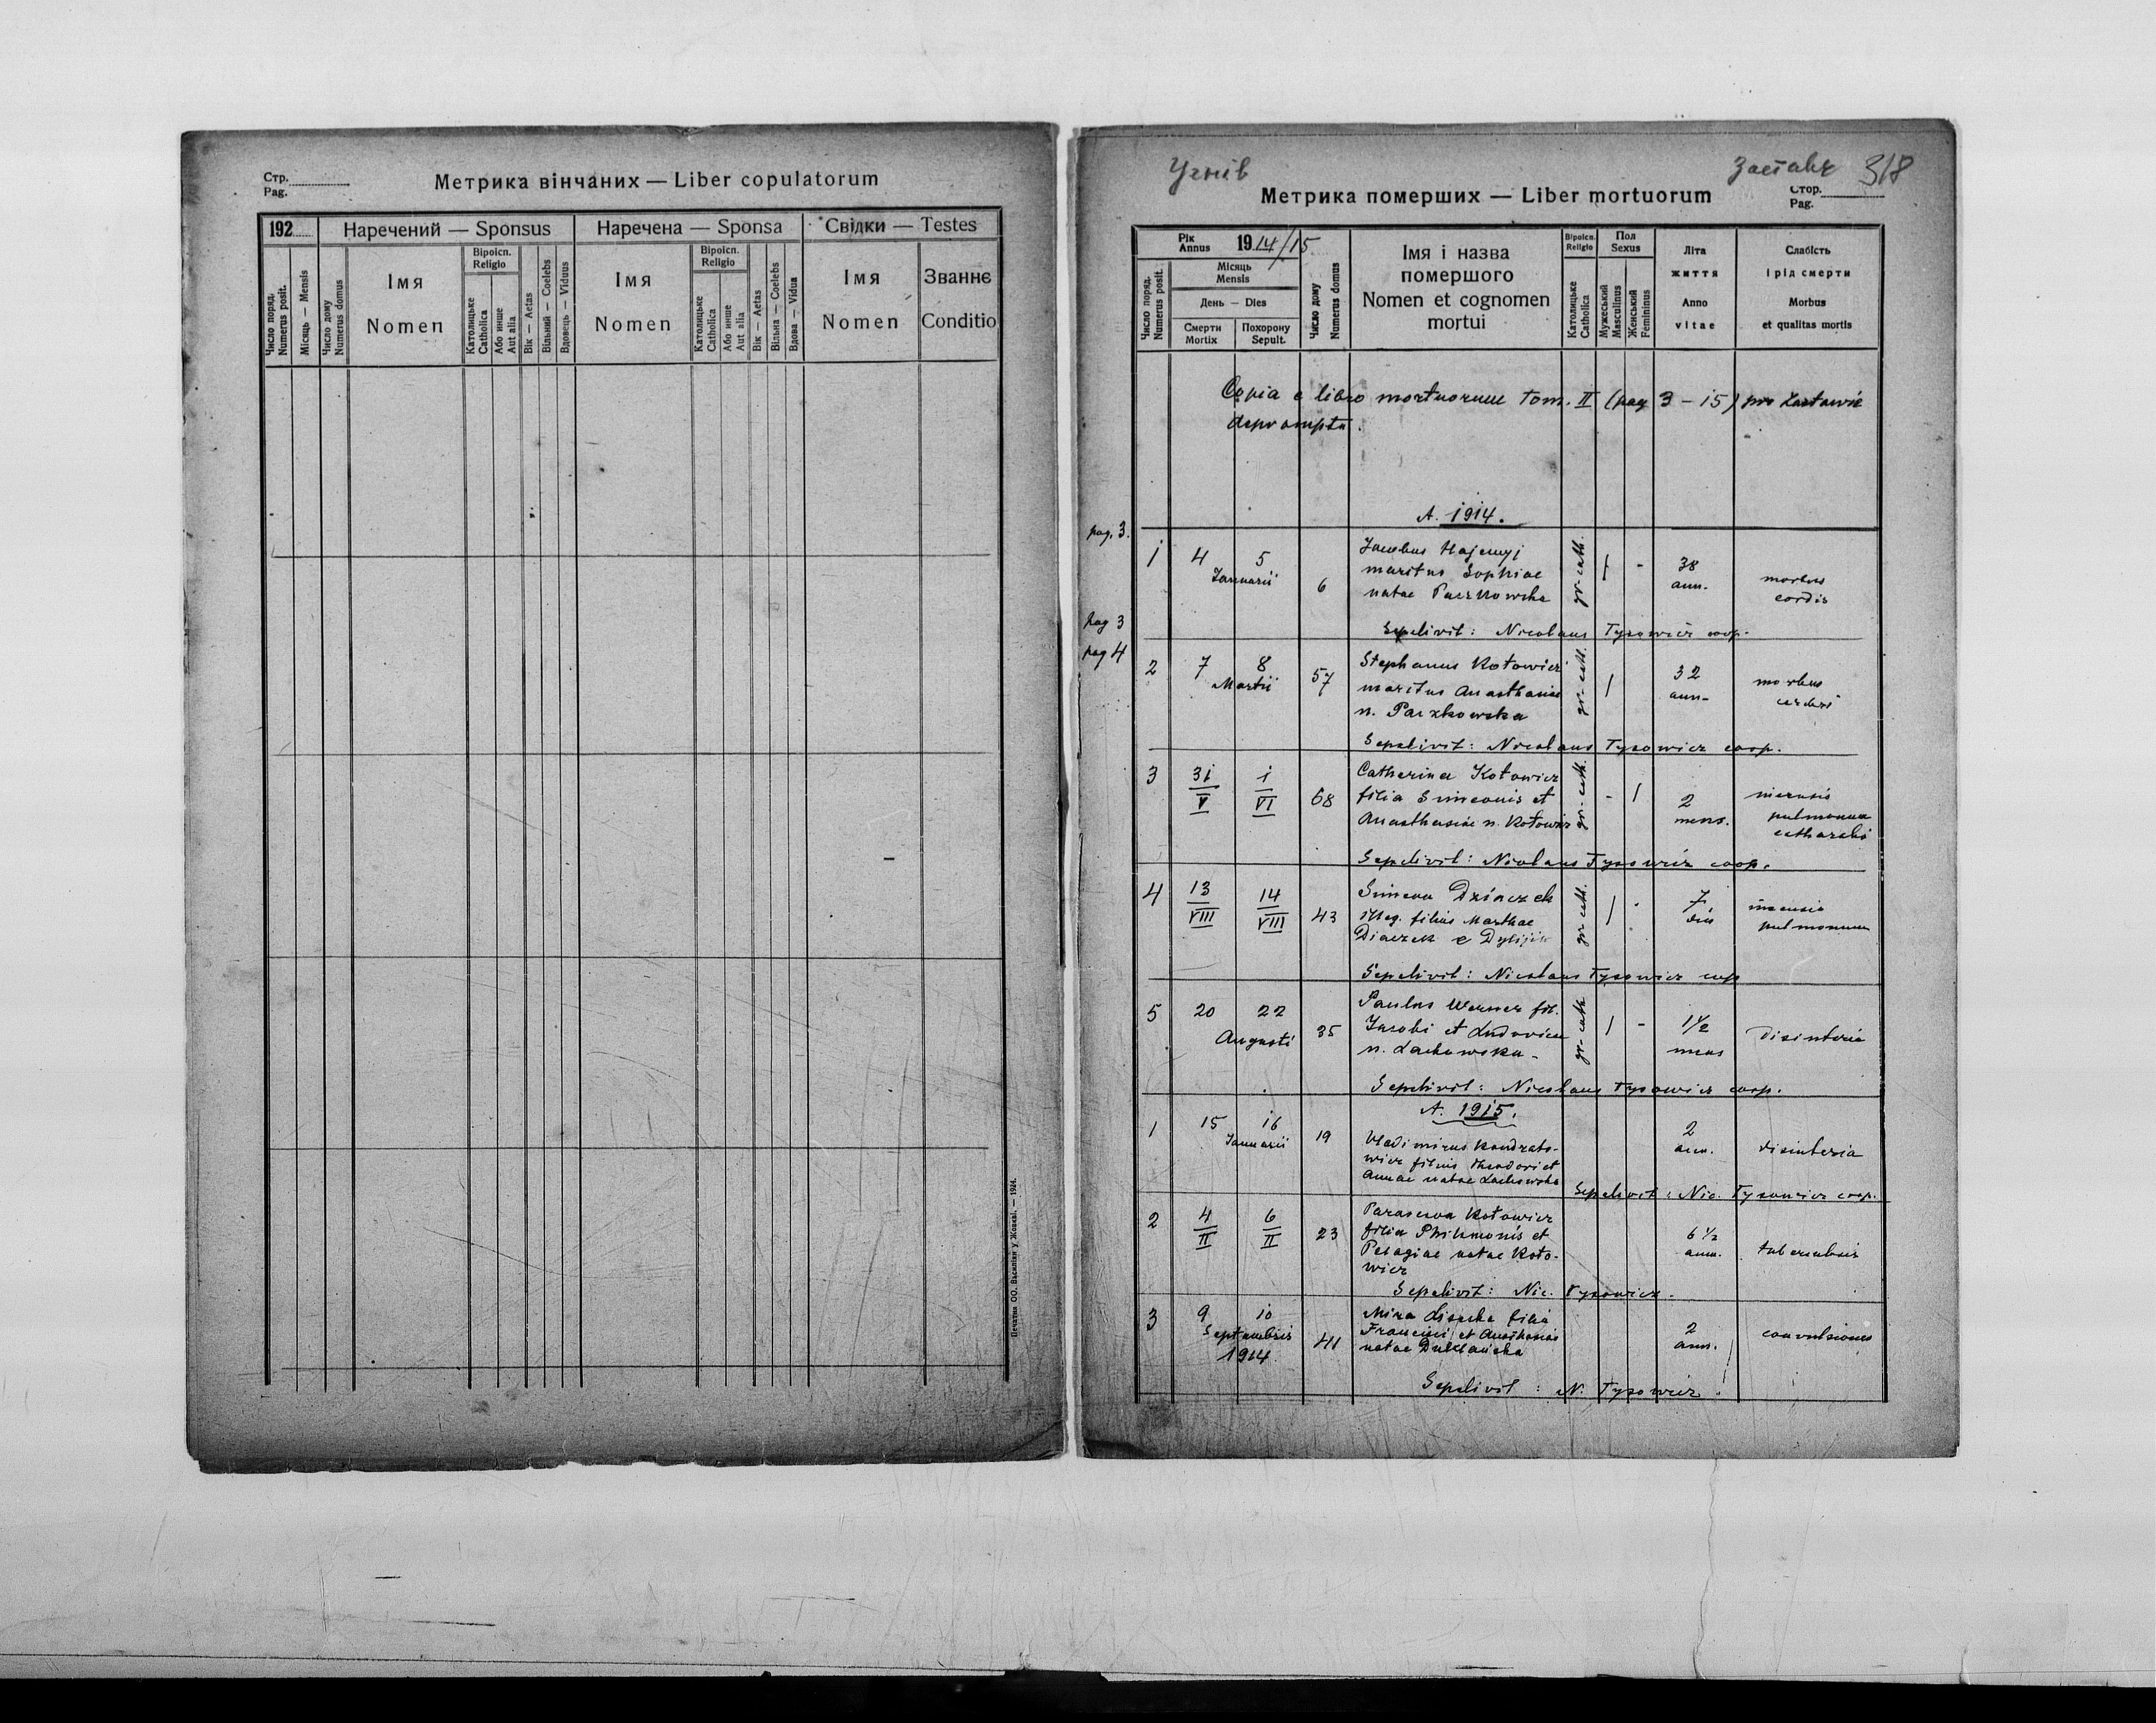 Стр.
Pag.
Метрика вінчаних — Liber copulatorum
192
Наречений — Sponsus
Наречена — Sponsa
Свідки — Testes
Число поряд.
Numerus posit.
Місяць — Mensis
Число дому
Numerus domus
Імя
Nomen
Віроісп.
Religio
Католицьке
Catholica
Або инше
Aut alia
Вік — Aetas
Вільний — Coelebs
Вдовець — Viduus
Імя
Nomen
Віроісп.
Religio
Католицьке
Catholica
Або инше
Aut alia
Вік — Aetas
Вільна — Coelebs
Вдова — Vidua
Імя
Nomen
Званнє
Conditio
Печатня ОО. Василіян у Жовкві. — 1924.
Угнів
Заставє 318
Метрика померших — Liber mortuorum
Стор.
Pag.
Рік
Annus
1914/15
Місяць
Mensis
День — Dies
Число поряд.
Numerus posit.
Смерти
Mortix
Похорону
Sepult.
Число дому
Numerus domus
Імя і назва
помершого
Nomen et cognomen
mortui
Віроісп.
Religio
Католицьке
Catholica
Пол
Sexus
Мужеський
Masculinus
Женський
Femininus
Літа
життя
Anno
vitae
Слабість
і рід смерти
Morbus
et qualitas mortis
Copia e libro mortuorum Tom. II (pag 3 – 15) pro Zastawie
deprompta.
A. 1914.
pag. 3.
1 4 5 Januarii 6
Jacobus
maritus Sophiae
natae Paczkowska
gr-cath. 1 - 38 ann.
morbus
cordis
Sepelivit: Nicolaus Tysowicz coop.
pag 3
pag 4
2 7 8 Martii 57
Stephanus Kotowicz
maritus Anasthasiae
n. Paczkowska
gr-cath. 1 32 ann-
morbus
cerebri
Sepelivit: Nicolaus Tysowicz coop.
3 31/V 1/VI 68
Catherina Kotowicz
filia Simeonis et
Anasthasiae n. Kotowicz
gr-cath. - 1 2 mens.
pulmonum
Sepelivit: Nicolaus Tysowicz coop.
4 13/VIII 14/VIII 43
Simeon Dziaczek
illeg. filius Marthae
Diaczek e
gr cath. 1 7 dies
pulmonum
Sepelivit: Nicolaus Tysowicz coop
5 20 22 Augusti 35
Paulus Werner fil.
Jacobi et Ludovicae
n. Lachowska-
gr-cath 1 - 1½ mens
disinteria
Sepelivit: Nicolaus Tysowicz coop.
A. 1915.
1 15 16 Januarii 19
Vladimirus Kondrato-
wicz filius Theodori et
Annae natae Lachowska
2 ann.
disinteria
Sepelivit: Nic. Tysowicz coop.
2 4/II 6/II 23
Parascewa Kotowicz
filia Philimonis et
Pelagiae natae Koto-
wicz
6½ ann.
tuberculosis
Sepelivit: Nic. Tysowicz.
3 9 10 Septembris 1914 41
filia
Francisci et Anasthasiae
natae
2 ann.
convulsiones
Sepelivit: N. Tysowicz.